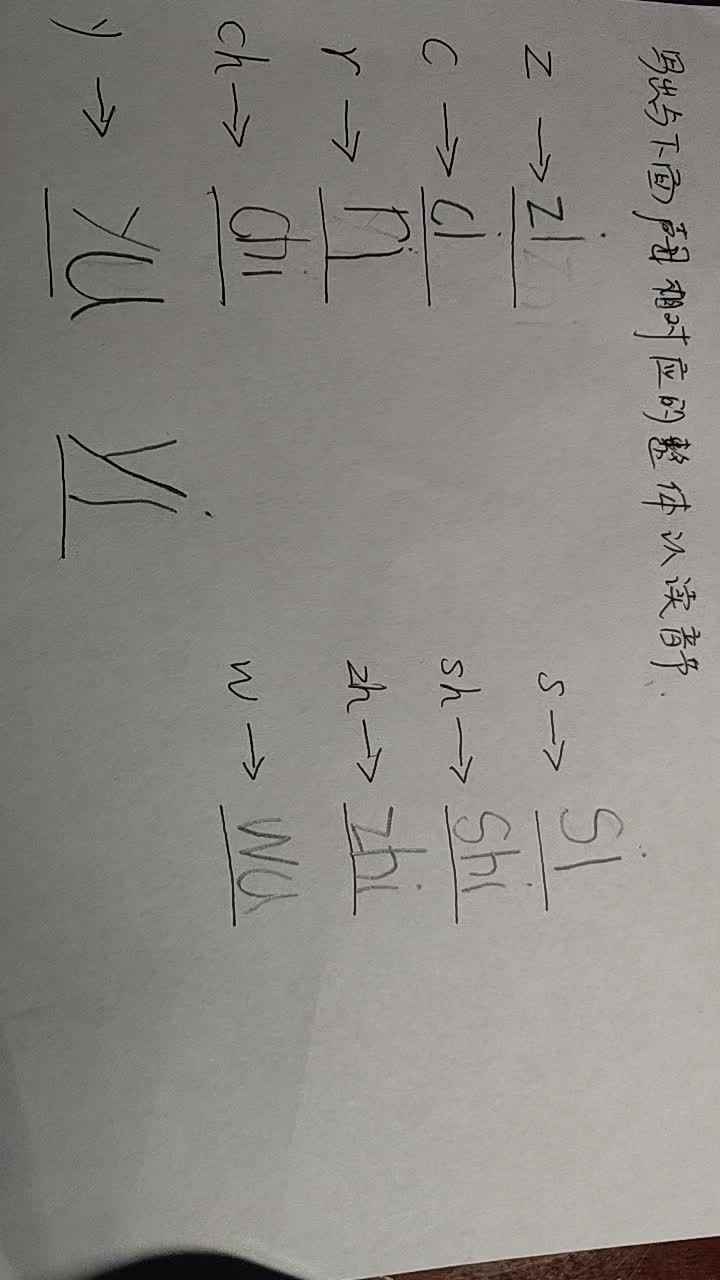 写出与下面声母相对应的整体认读音节.
z → zi s → si
c → ci sh → shi
r → ri zh → zhi
ch → chi w → wu
y → yu yi